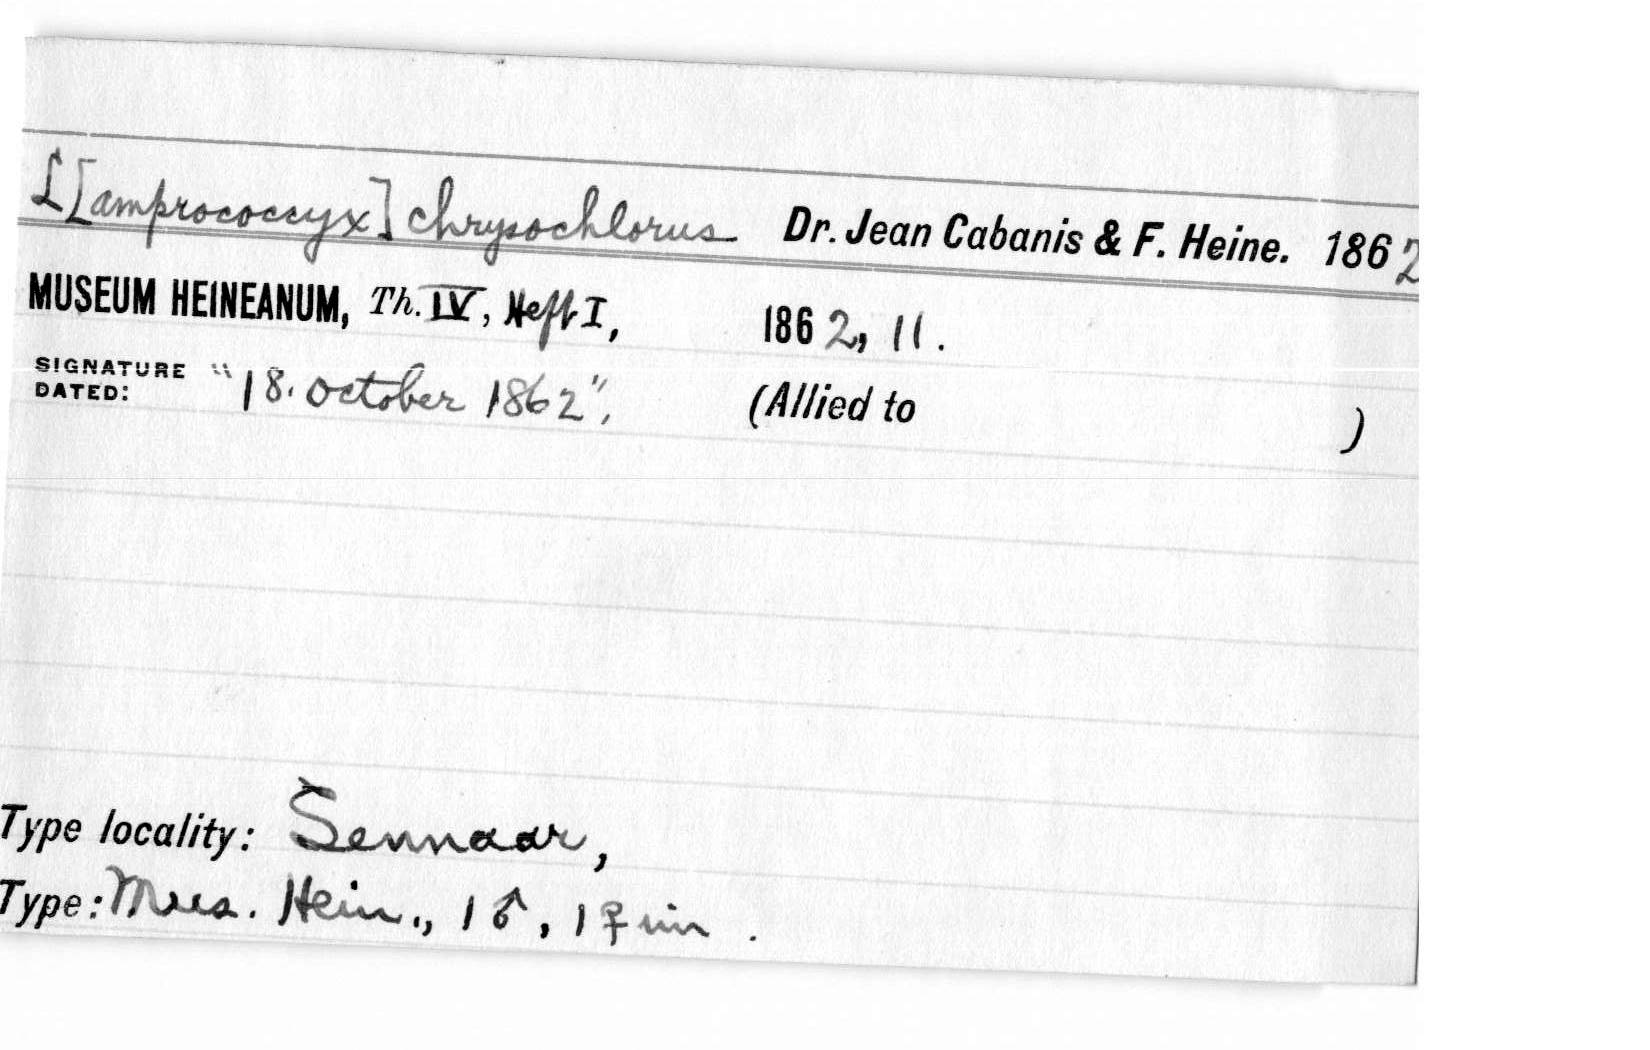 L[amprococcyx] chrysochlorus Dr. Jean Cabanis & F. Heine. 1862
MUSEUM HEINEANUM, Th. IV, Heft I, 1862, 11.
SIGNATURE DATED: "18. October 1862", (Allied to )
Type locality: Sennaar,
Type: Mus. Hein., 1 ♂, 1 ♀ im .